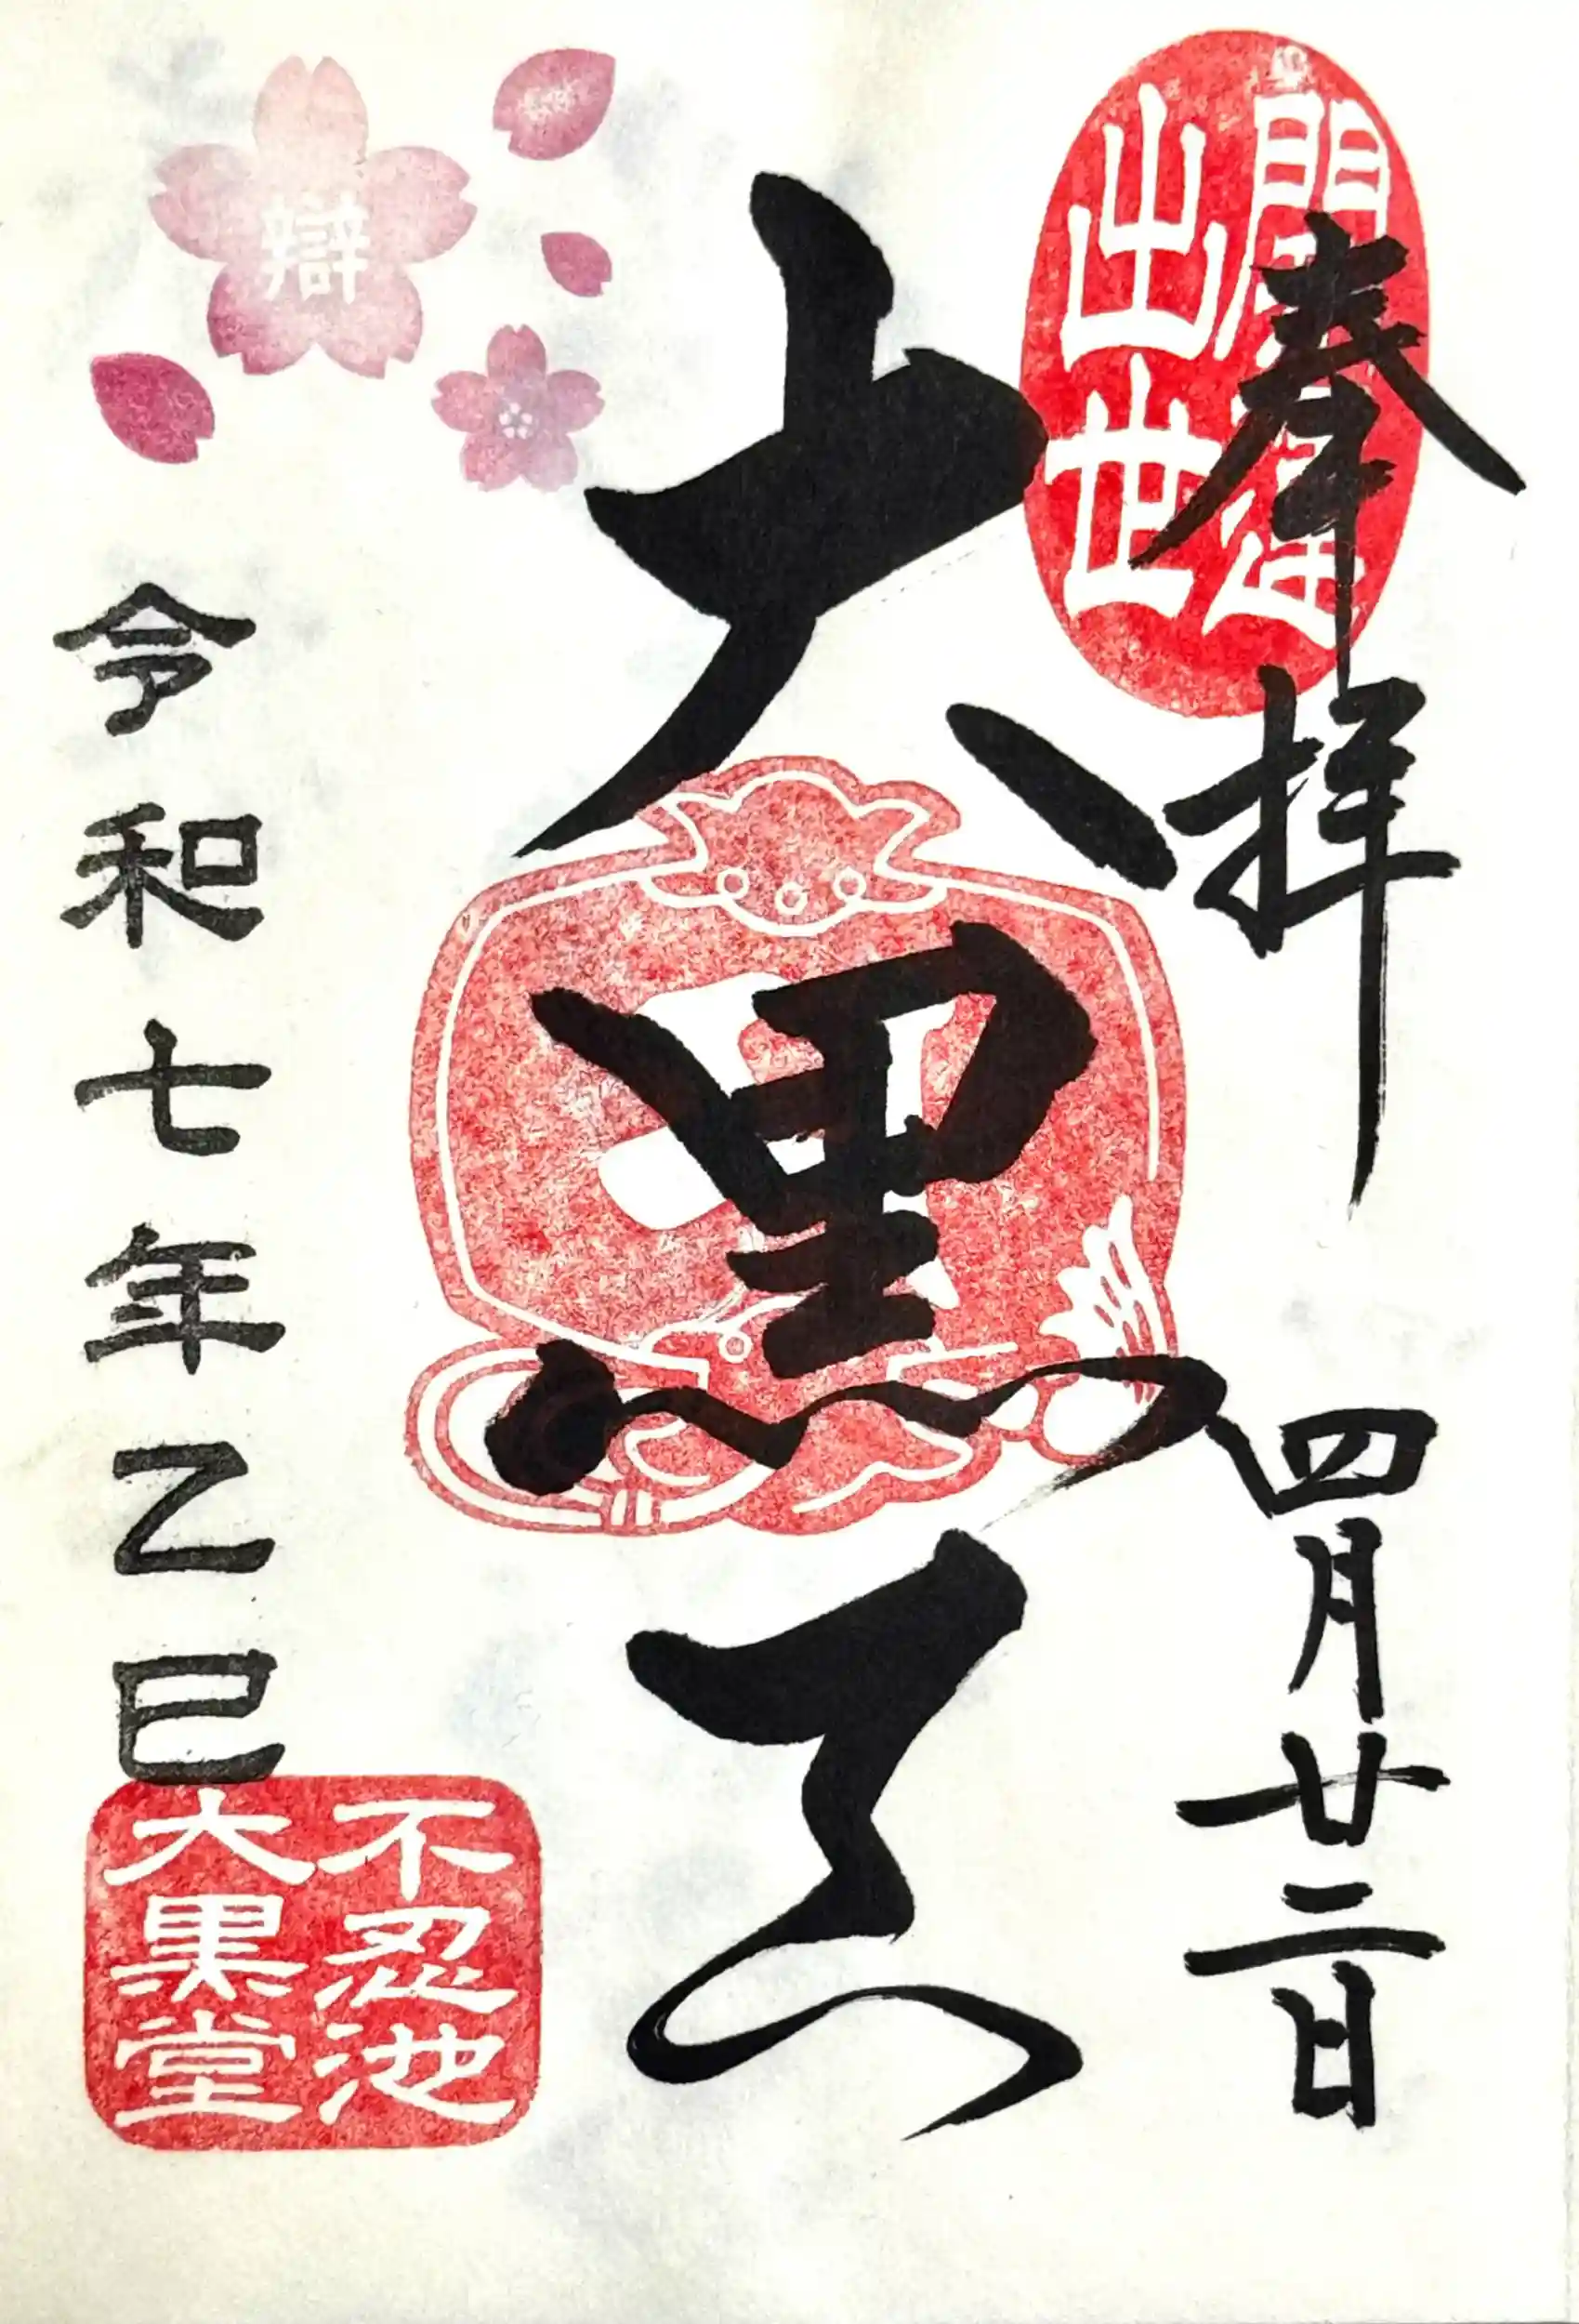 開運
出世
奉拝 四月廿二日
大黒天
辯
令和七年乙巳
不忍池
大黒堂